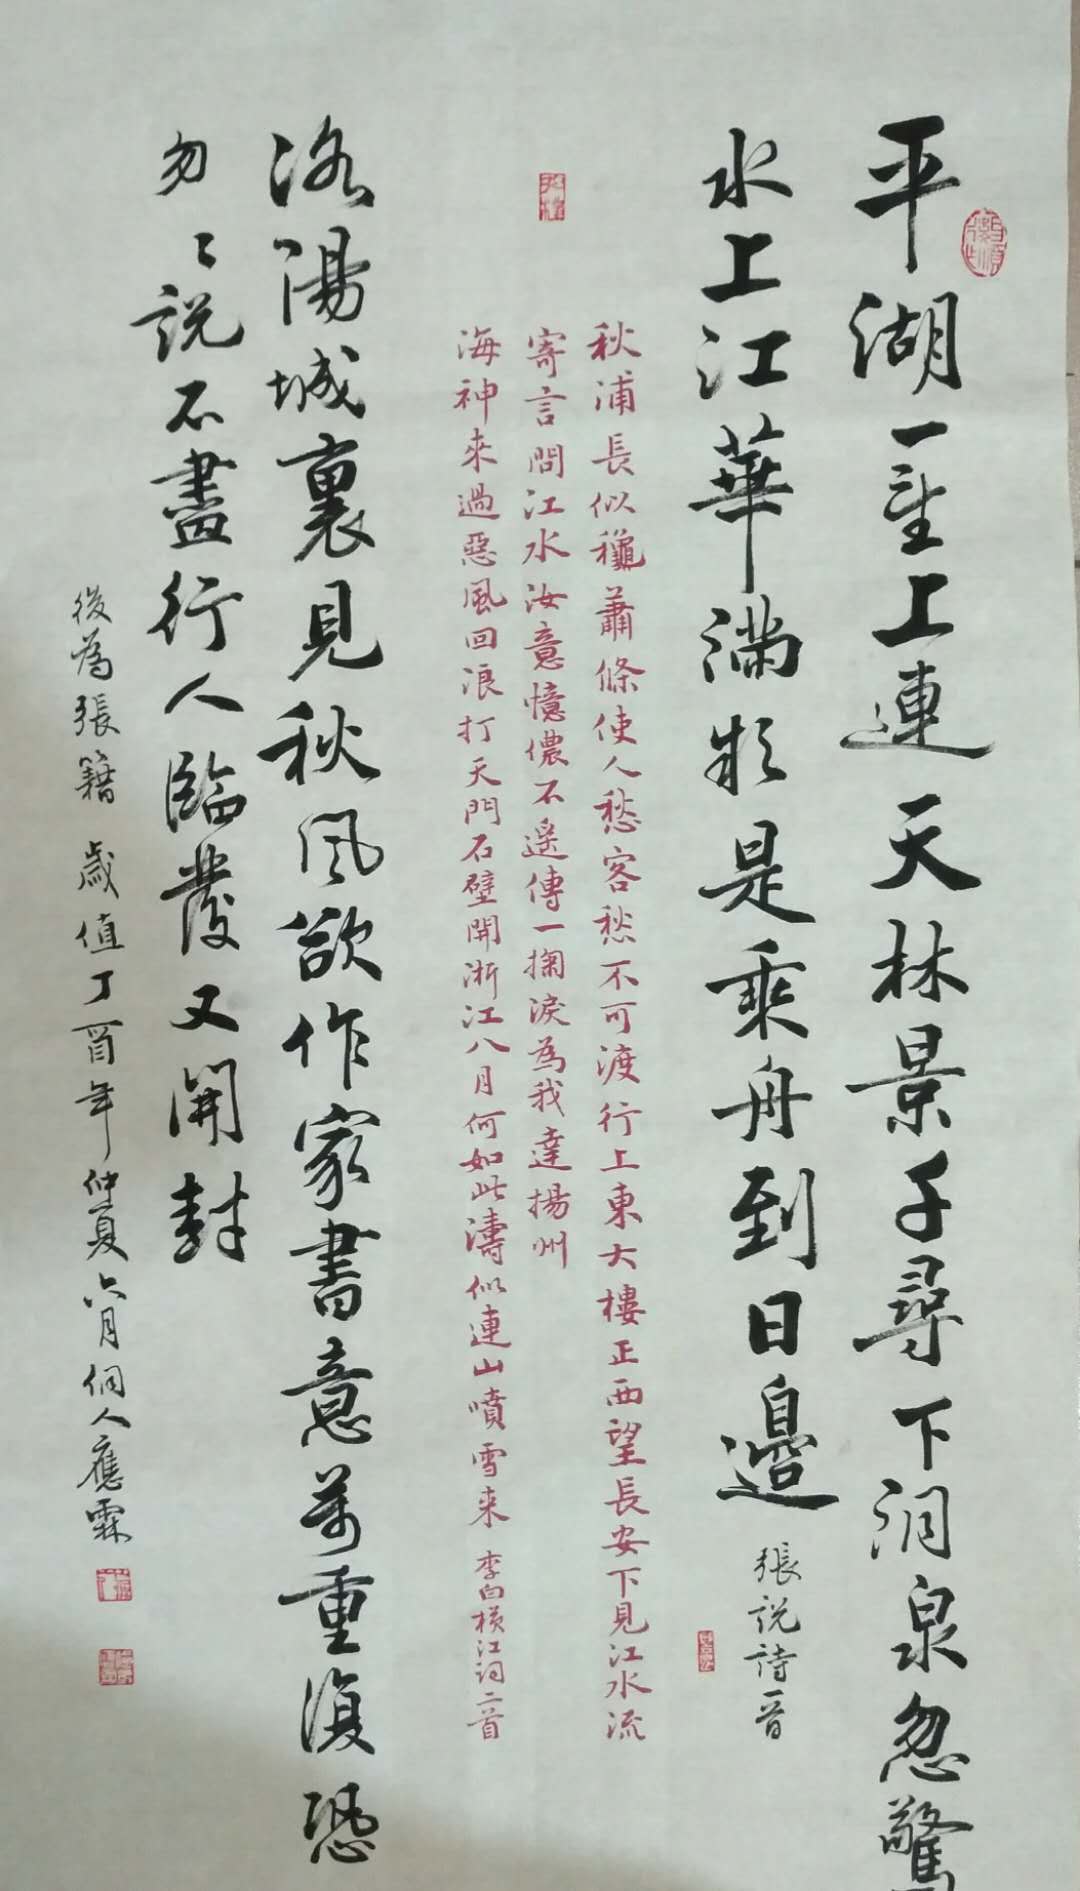 平湖一望上連天林景千尋下洞泉忽驚
水上江華滿疑是乘舟到日邊
張說詩一首
秋浦長似穐蕭條使人愁客愁不可渡行上東大樓正西望長安下見江水流
寄言問江水汝意憶儂不遙傳一掬淚為我達揚州
海神來過惡風回浪打天門石壁開浙江八月何如此濤似連山噴雪來
李白橫江詞二首
洛陽城裏見秋風欲作家書意萬重復恐
匆〻說不盡行人臨發又開封
後為張籍 歲值丁酉年仲夏六月 個人應霖